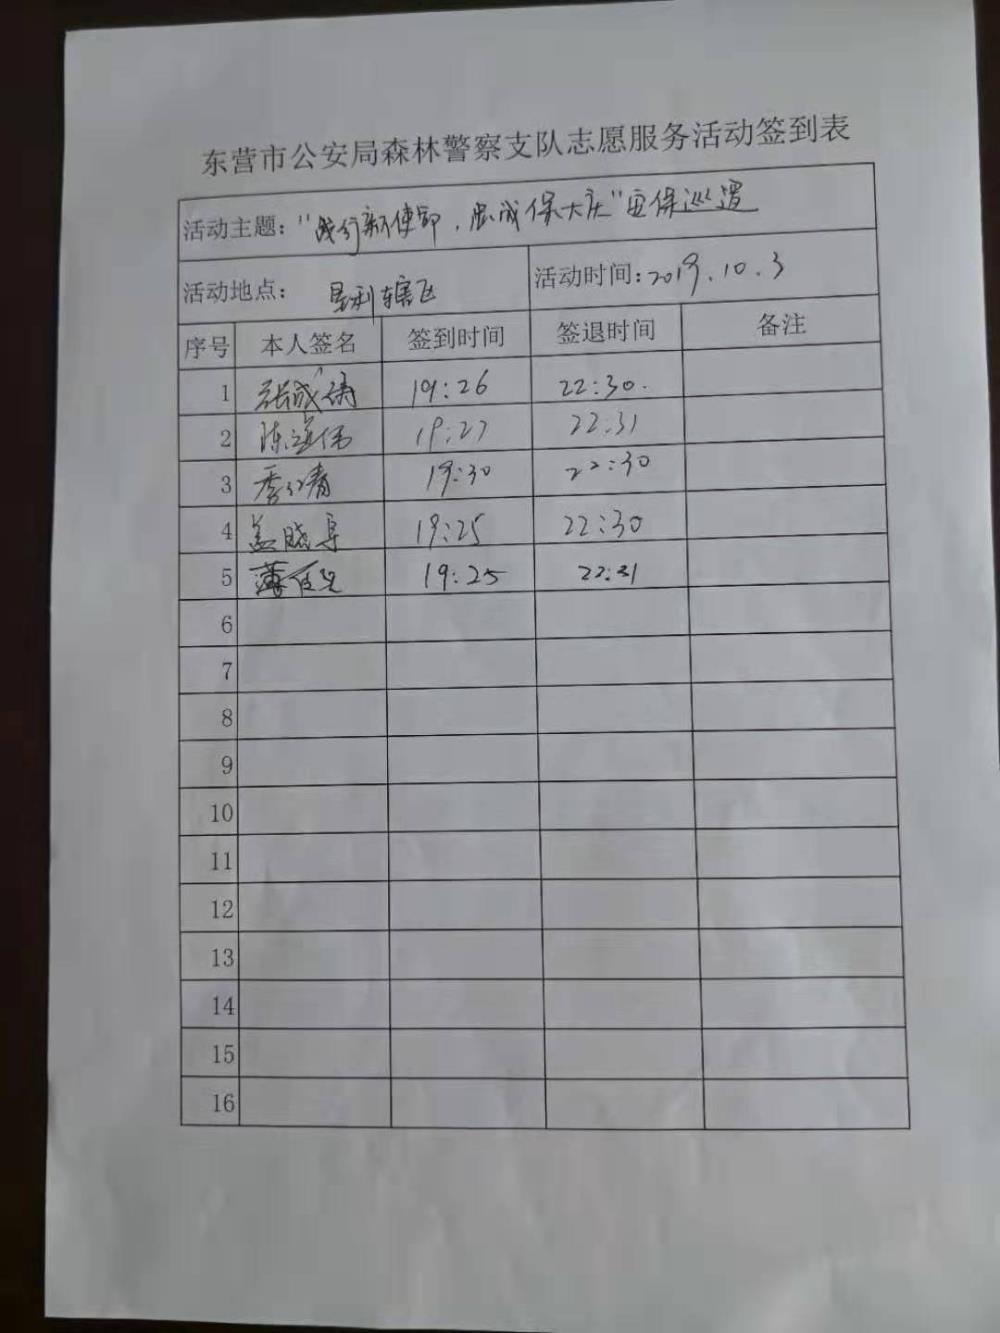 东营市公安局森林警察支队志愿服务活动签到表
活动主题："践行新使命，忠诚保大庆"安保巡逻
活动地点： 垦利辖区 活动时间：2019.10.3
序号 本人签名 签到时间 签退时间 备注
1 19:26 22:30.
2 19:27 22:31
3 19:30 22:30
4 19:25 22:30
5 19:25 22:31
6
7
8
9
10
11
12
13
14
15
16